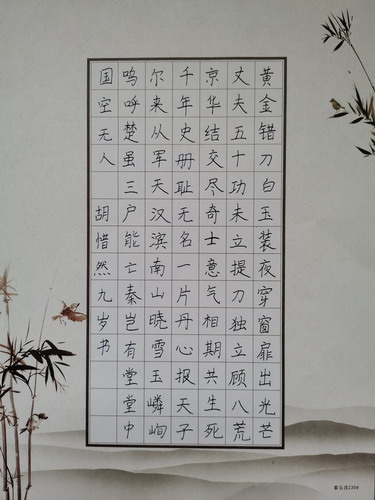 黄金错刀白玉装夜穿窗扉出光芒
丈夫五十功未立提刀独立顾八荒
京华结交尽奇士意气相期共生死
千年史册耻无名一片丹心报天子
尔来从军天汉滨南山晓雪玉嶙峋
呜呼楚虽三户能亡秦岂有堂堂中
国空无人 胡惜然九岁书